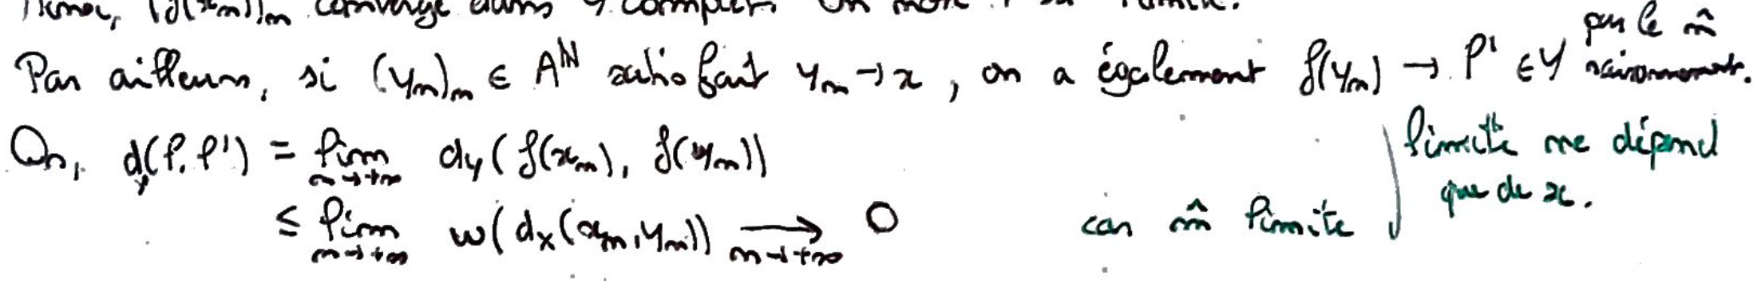 (f(xₙ))ₙ converge dans Y complet. On note l sa limite.
Par ailleurs, si (yₙ)ₙ ∈ A^ℕ satisfait yₙ → x, on a également f(yₙ) → l' ∈ Y par le m̂ raisonnement.
Or, d_Y(l, l') = lim_{n→+∞} d_Y(f(xₙ), f(yₙ))
≤ lim_{n→+∞} w(d_X(xₙ, yₙ)) →_{n→+∞} 0 car m̂ limite
limite ne dépend
que de x.